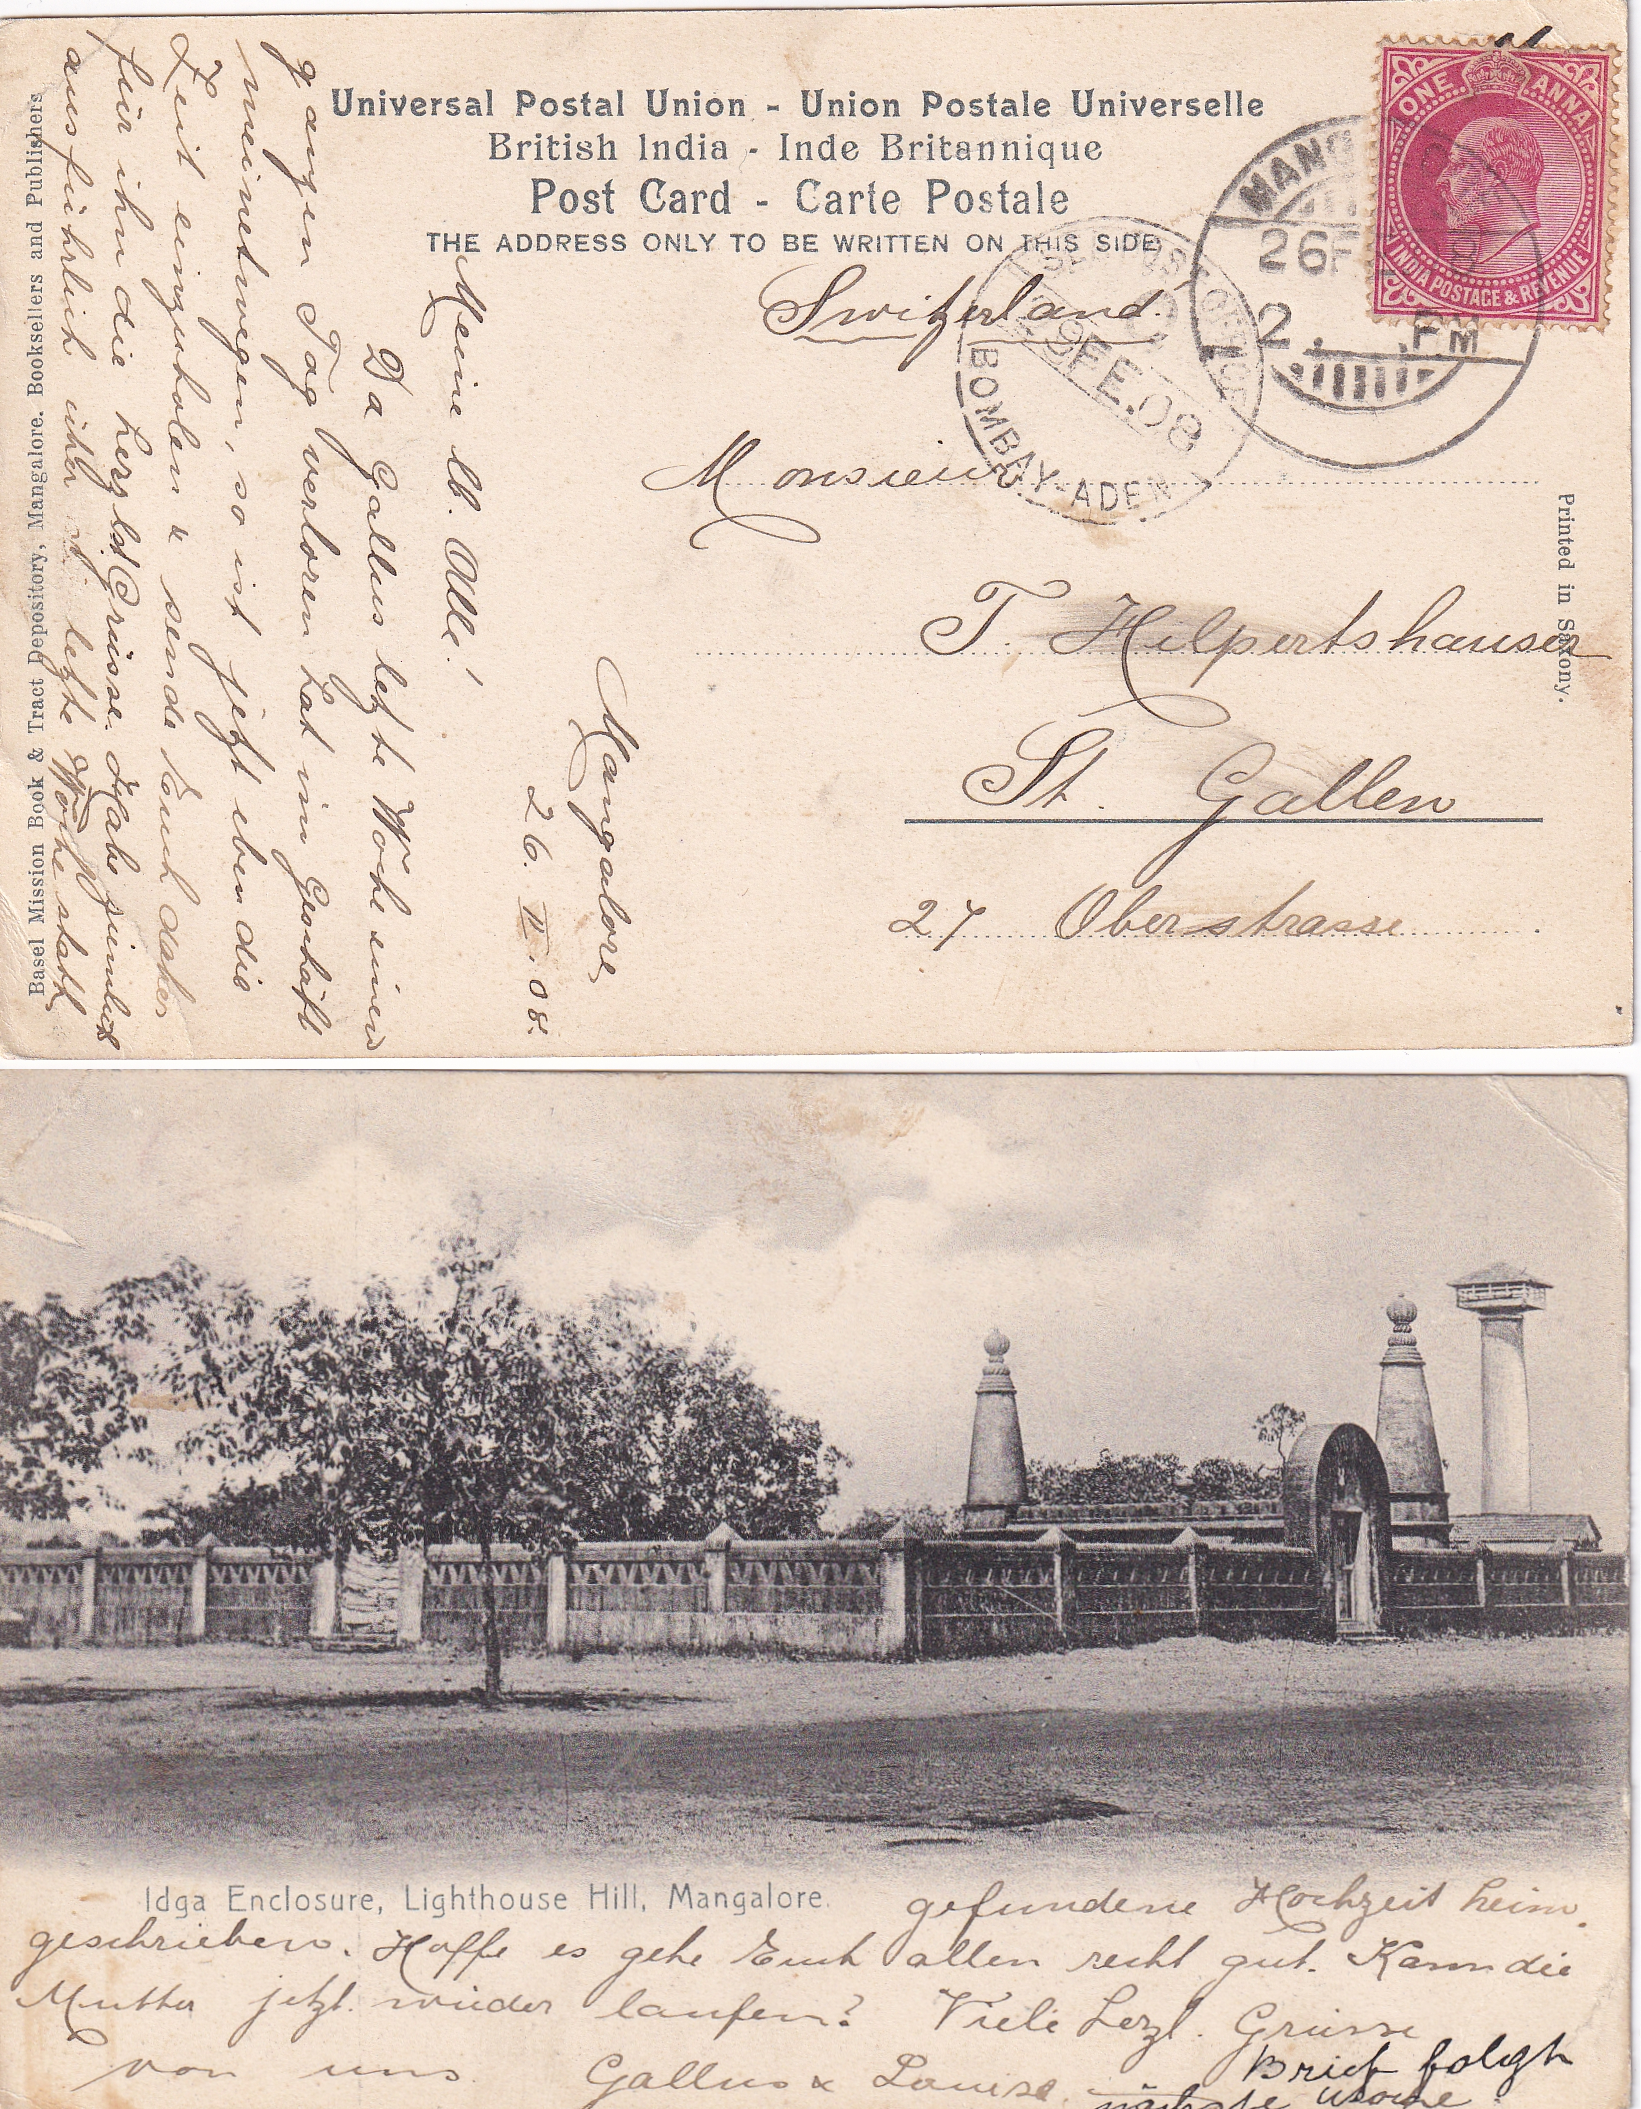 Universal Postal Union - Union Postale Universelle
British India - Inde Britannique
Post Card - Carte Postale
THE ADDRESS ONLY TO BE WRITTEN ON THIS SIDE
ONE ANNA
INDIA POSTAGE & REVENUE
MANG
26 F
2 . P.M
SEA POST OFFICE
C
29 FE.08
BOMBAY-ADEN
Switzerland.
Monsieur
T. Hilpertshauser
St. Gallen
27 Oberstrasse
Printed in Saxony.
Mangalore
26. II. 08.
Meine lb. Alle!
Da Gallus letzte Woche einen
ganzen Tag verloren hat im Geschäft
meinetwegen, so ist jetzt eben die
Zeit einzuholen & sende Euch daher
für ihn die herzlst Grüsse. Habe ziemlich
ausführlich über letzte Woche statt
Basel Mission Book & Tract Depository, Mangalore. Booksellers and Publishers
Idga Enclosure, Lighthouse Hill, Mangalore.
gefundene Hochzeit heim
geschrieben. Hoffe es gehe Euch allen recht gut. Kann die
Mutter jetzt wieder laufen? Viele herzl. Grüsse
von uns Gallus & Louise.
Brief folgt
nächste Woche.